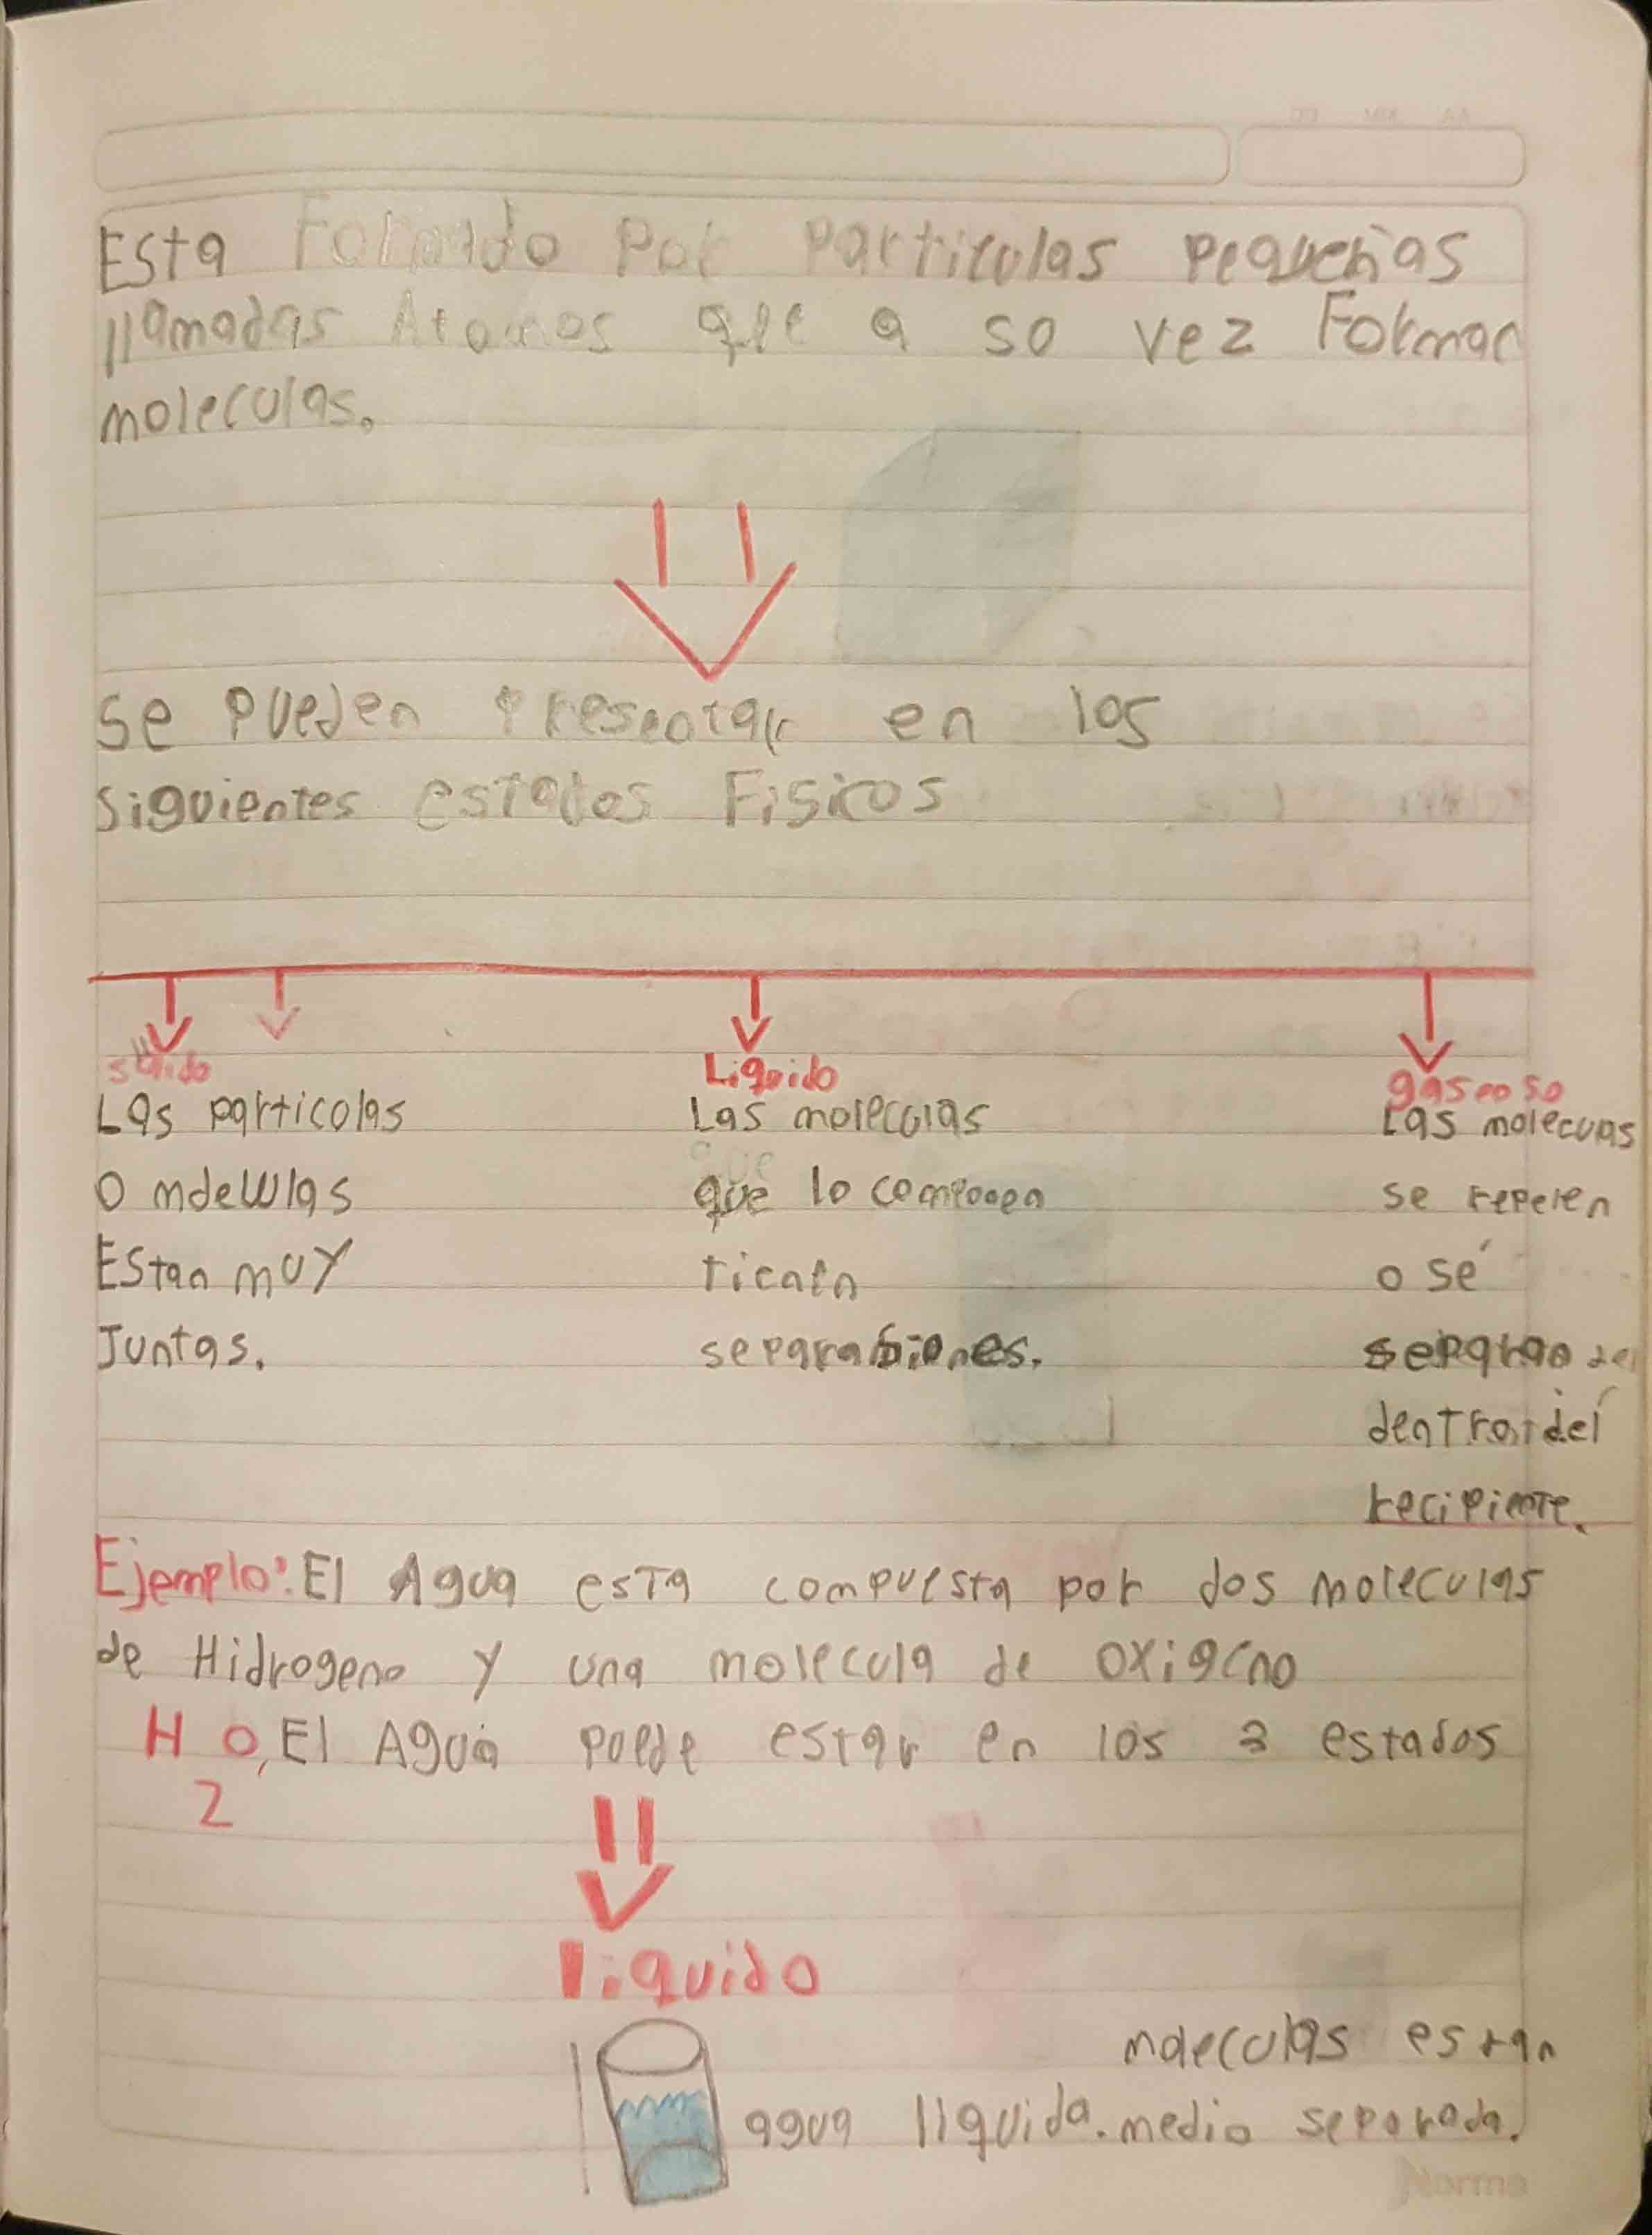 Esta Formado Por Particulas Pequeñas
llamadas Atomos que a so vez Forman
moleculas.
Se Pueden Presentar en los
siguientes estados Fisicos
sólido
Las particolas
O moleculas
Estan muy
Juntas.
Liquido
Las moleculas
que lo componen
ticnen
separasiones.
gaseoso
Las molecuas
se repelen
o sé
separan
dentro del
recipiente.
Ejemplo: El Agua esta compuesta por dos moleculas
de Hidrogeno y una molecula de oxigeno
H O, El Agua puede estar en los 3 estados
2
liquido
moleculas estan
agua liquida. medio separada.
Norma